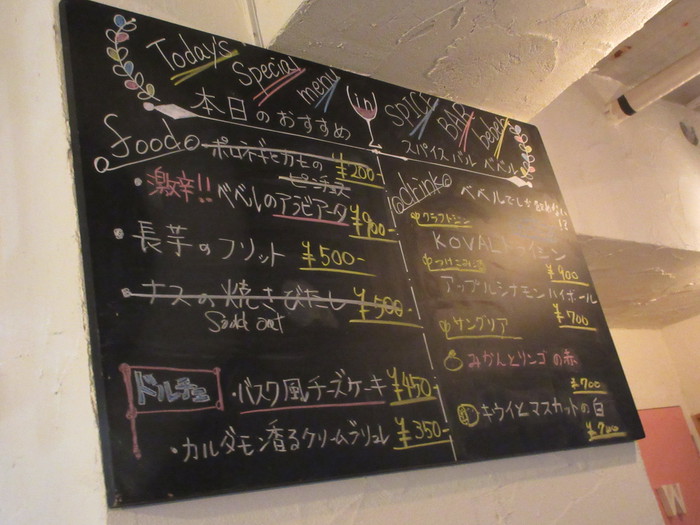 Today's Special menu in SPICE BAR bebel
本日のおすすめ
スパイスバル ベベル
food
ポロネギとカセの
ピンチョス ¥200-
・激辛!! ベベルのアラビアータ ¥900-
・長芋のフリット ¥500-
・ナスの焼きびたし ¥500-
Sold out
ドルチェ
・バスク風チーズケーキ ¥450-
・カルダモン香るクリームブリュレ ¥350-
drink
ベベルでしか飲めない
クラフトジン
KOVAL ドライジン
¥900
アップルシナモンハイボール
¥700
サングリア
みかんとリンゴの赤
¥700
キウイとマスカットの白
¥700
W